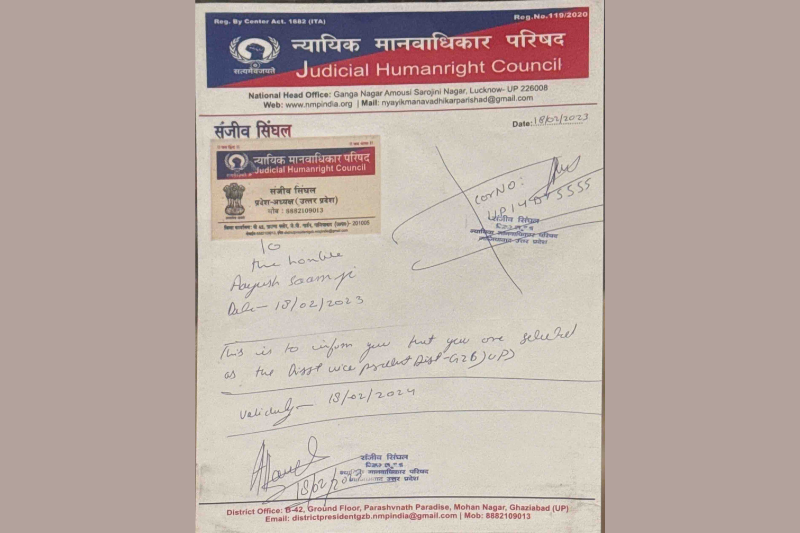 Reg. By Center Act. 1882 (ITA)
Reg.No.119/2020
न्यायिक मानवाधिकार परिषद
Judicial Humanright Council
सत्यमेवजयते
National Head Office: Ganga Nagar Amousi Sarojini Nagar, Lucknow- UP 226008
Web: www.nmpindia.org | Mail: nyayikmanavadhikarparishad@gmail.com
संजीव सिंघल
Date: 18/02/2023
न्यायिक मानवाधिकार परिषद
Judicial Humanright Council
संजीव सिंघल
प्रदेश-अध्यक्ष (उत्तर प्रदेश)
मोब : 8882109013
Car No:
UP14
5555
संजीव सिंघल
न्यायिक मानवाधिकार परिषद
गाजियाबाद उत्तर प्रदेश
To
the honble
Aayush
Date- 18/02/2023
This is to inform you that you are selected
as the Disst vice Disst-GZB)UP)
validity- 18/02/2024
संजीव सिंघल
मानवाधिकार परिषद
उत्तर प्रदेश
18/02/2023
District Office: B-42, Ground Floor, Parashvnath Paradise, Mohan Nagar, Ghaziabad (UP)
Email: districtpresidentgzb.nmpindia@gmail.com | Mob: 8882109013